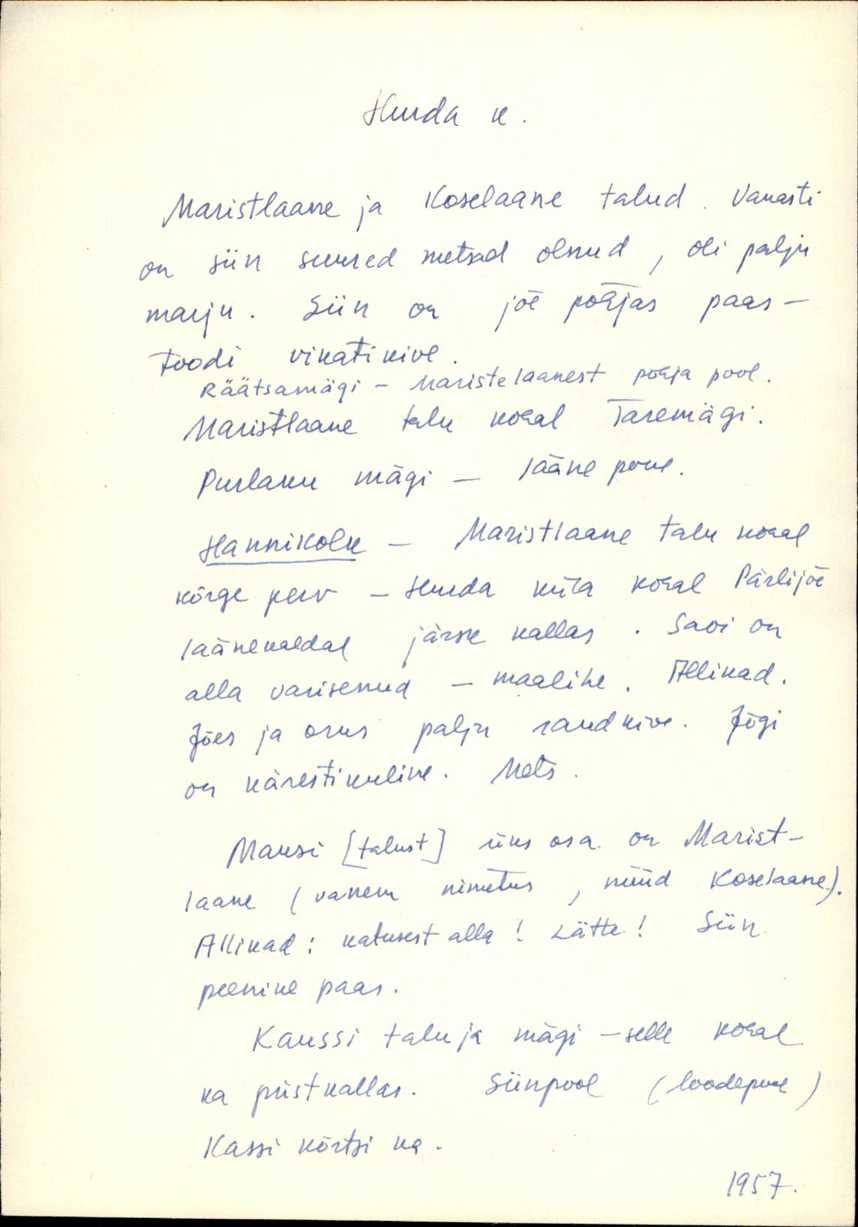 Hurda k.
Maristlaane ja Koselaane talud. Vanasti
on siin suured metsad olnud, oli palju
marju. Siin on jõe põhjas paas –
toodi vikatikive.
Räätsamägi – Maristelaanest põhja pool.
Maristlaane talu kohal Taremägi.
Purlaku mägi – lääne pool.
Hannikolk – Maristlaane talu kohal
kõrge perv – Hurda küla kohal Pärlijõe
läänekaldal järsk kallas. Savi on
alla varisenud – maalihe. Allikad.
Jões ja orus palju raudkive. Jõgi
on kärestikuline. Mets.
Mausi [talust] üks osa on Marist-
laane (vanem nimetus, nüüd Koselaane).
Allikad: katusest alla! Lätte! Siin
peenike paas.
Kaussi talu ja mägi – selle kohal
ka püstkallas. Siinpool (loodepool)
Kassi kõrtsi ka.
1957.